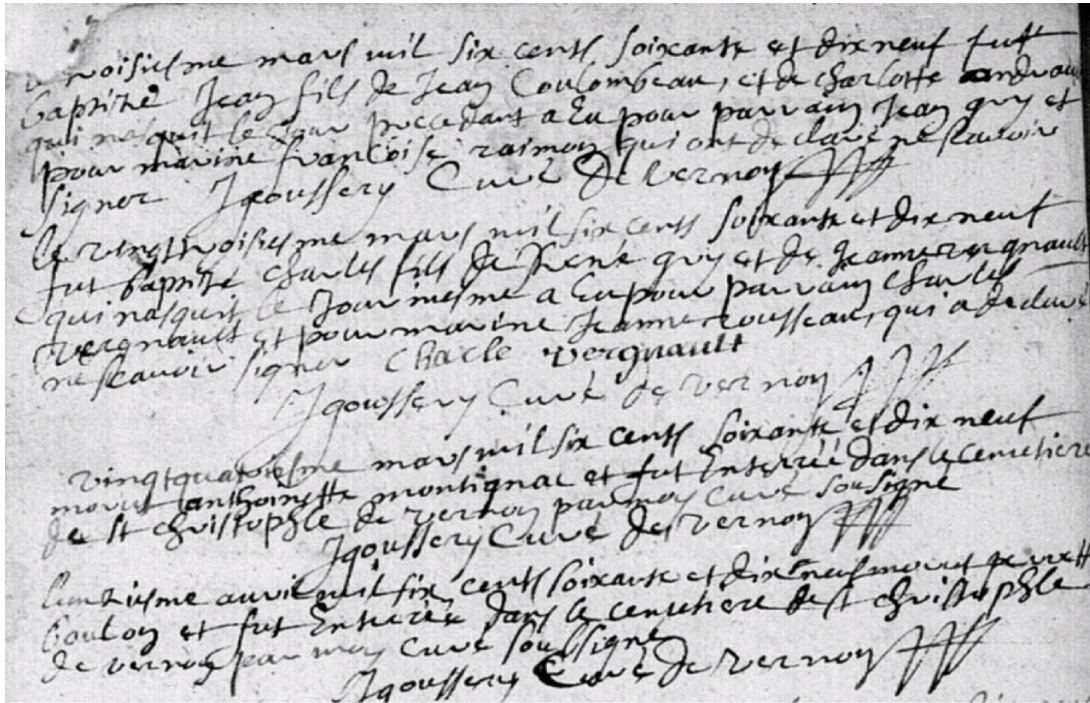 troisiesme mars mil six cents soixante et dix neuf futt
baptizé Jean fils de Jean Coulombeau, et de charlotte
qui nasquit le jour precedant a Eu pour parrain Jean guy et
pour marine francoise raimon qui ont declaré ne scavoir
signer Jgoussery Curé de vernon
le vingttroisiesme mars mil six cents soixante et dix neuf
fut baptizé Charles fils de René guy et de Jeanne vergnault
qui nasquit le Jour mesme a Eu pour parrain Charles
vergnault et pour marine Jeanne rousseau, qui a declaré
ne scavoir signer Charle vergnault
Jgoussery Curé de vernon
vingtquatriesme mars mil six cents soixante et dix neuf
mourut anthoinette montignac et fut Enterréé dans le cemetiere
de st christophle de vernon par moy Curé sousigné
Jgoussery Curé de vernon
Lunziesme avril mil six cents soixante et dix neuf mourut
boulon et fut Enterréé dans le cemetiere de st christophle
de vernon par moy Curé soussigné
Jgoussery Curé de vernon